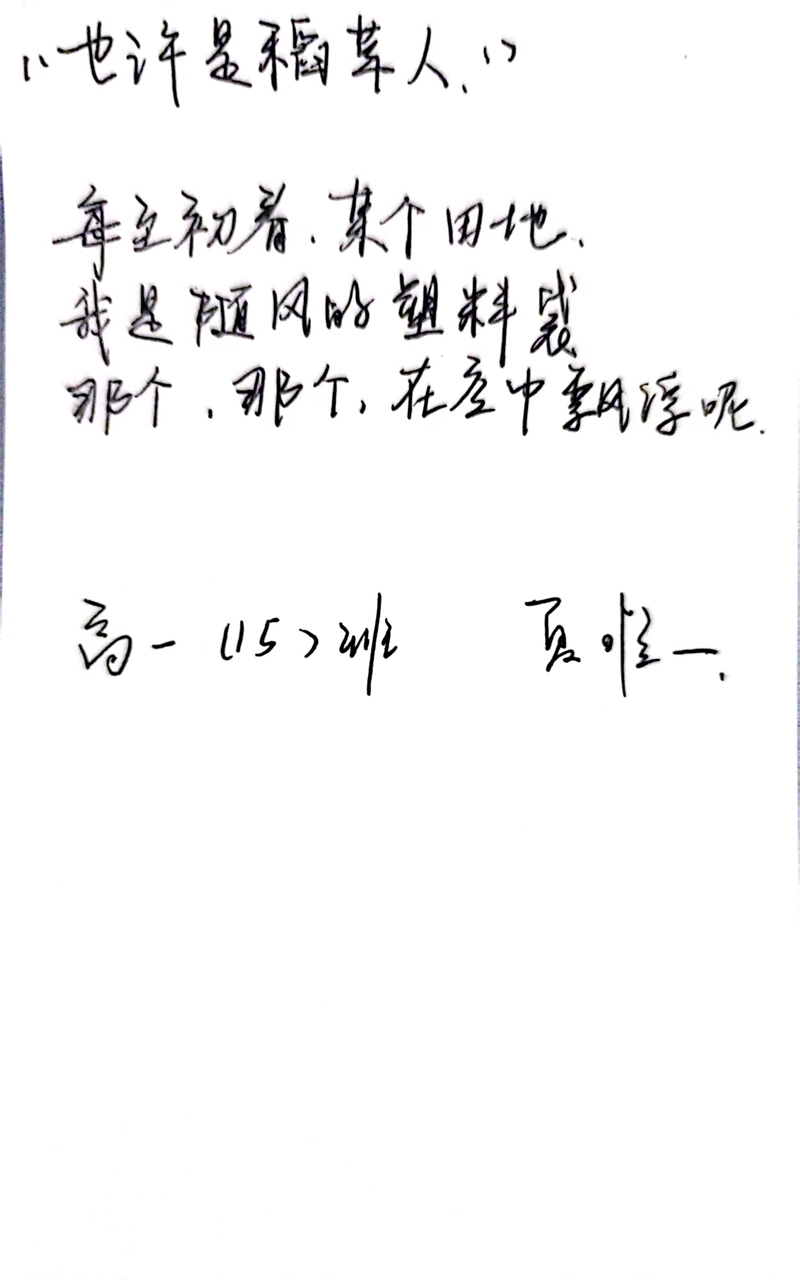 “也许是稻草人.”
每至初春.某个田地、
我是随风的塑料袋
那个.那个,在空中飘浮呢.
高一(15)班 夏惟一.